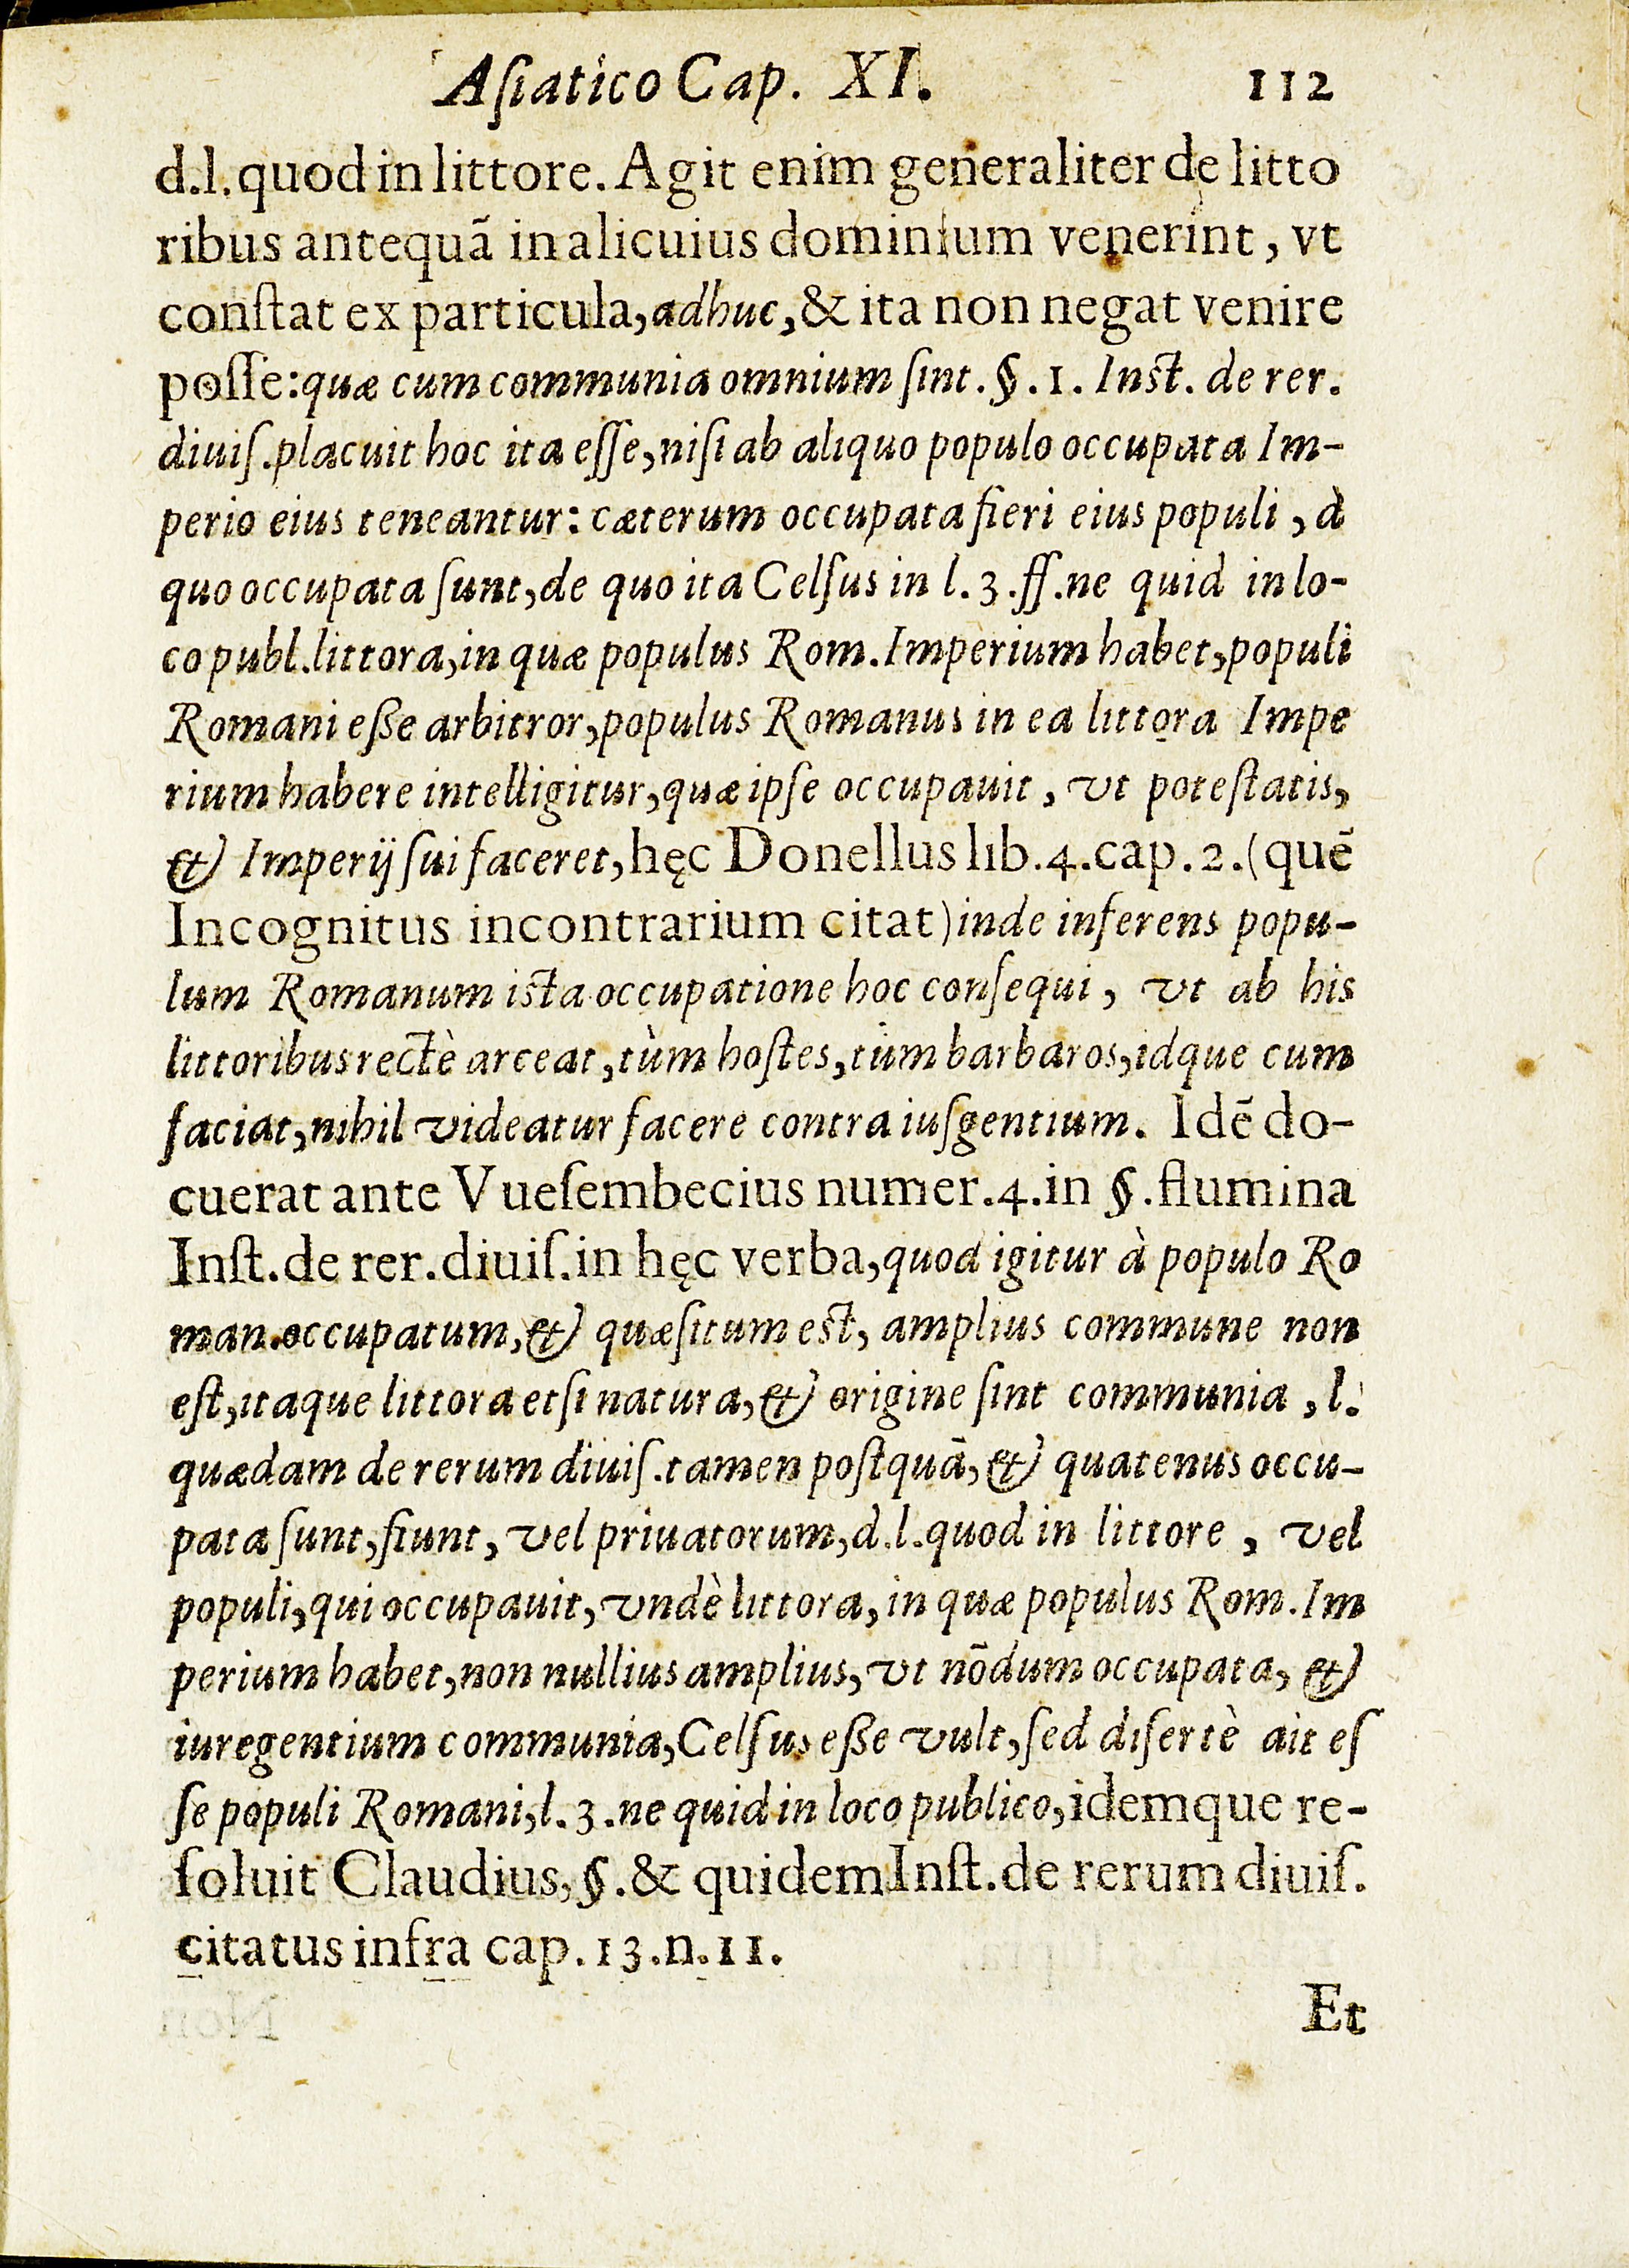 Aſiatico Cap. XI. 112
d.l. quod in littore. Agit enim generaliter de litto
ribus antequã in alicuius dominium venerint, vt
conſtat ex particula, adhuc, & ita non negat venire
poſſe: quæ cum communia omnium ſint. §. 1. Inſt. de rer.
diuiſ. placuit hoc ita eſſe, niſi ab aliquo populo occupata Im-
perio eius teneantur: cæterum occupata fieri eius populi, à
quo occupata ſunt, de quo ita Celſus in l. 3. ff. ne quid in lo-
co publ. littora, in quæ populus Rom. Imperium habet, populi
Romani eſſe arbitror, populus Romanus in ea littora Impe
rium habere intelligitur, quæ ipſe occupauit, vt poteſtatis,
& Imperij ſui faceret, hęc Donellus lib. 4. cap. 2. (quẽ
Incognitus incontrarium citat) inde inferens popu-
lum Romanum iſta occupatione hoc conſequi, vt ab his
littoribus rectè arceat, tùm hoſtes, tùm barbaros, idque cum
faciat, nihil videatur facere contra iuſgentium. Idẽ do-
cuerat ante Vueſembecius numer. 4. in §. flumina
Inſt. de rer. diuiſ. in hęc verba, quod igitur à populo Ro
man. occupatum, & quæſitum eſt, amplius commune non
eſt, itaque littora etſi natura, & origine ſint communia, l.
quædam de rerum diuiſ. tamen poſtquã, & quatenus occu-
pata ſunt, fiunt, vel priuatorum, d.l. quod in littore, vel
populi, qui occupauit, vndè littora, in quæ populus Rom. Im
perium habet, non nullius amplius, vt nõdum occupata, &
iuregentium communia, Celſus eſſe vult, ſed diſertè ait eſ
ſe populi Romani, l. 3. ne quid in loco publico, idemque re-
ſoluit Claudius, §. & quidem Inſt. de rerum diuiſ.
citatus infra cap. 13. n. 11.
Et